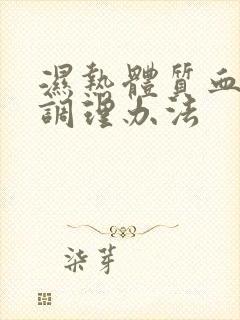 濕熱體質血
調理办法
柒芽